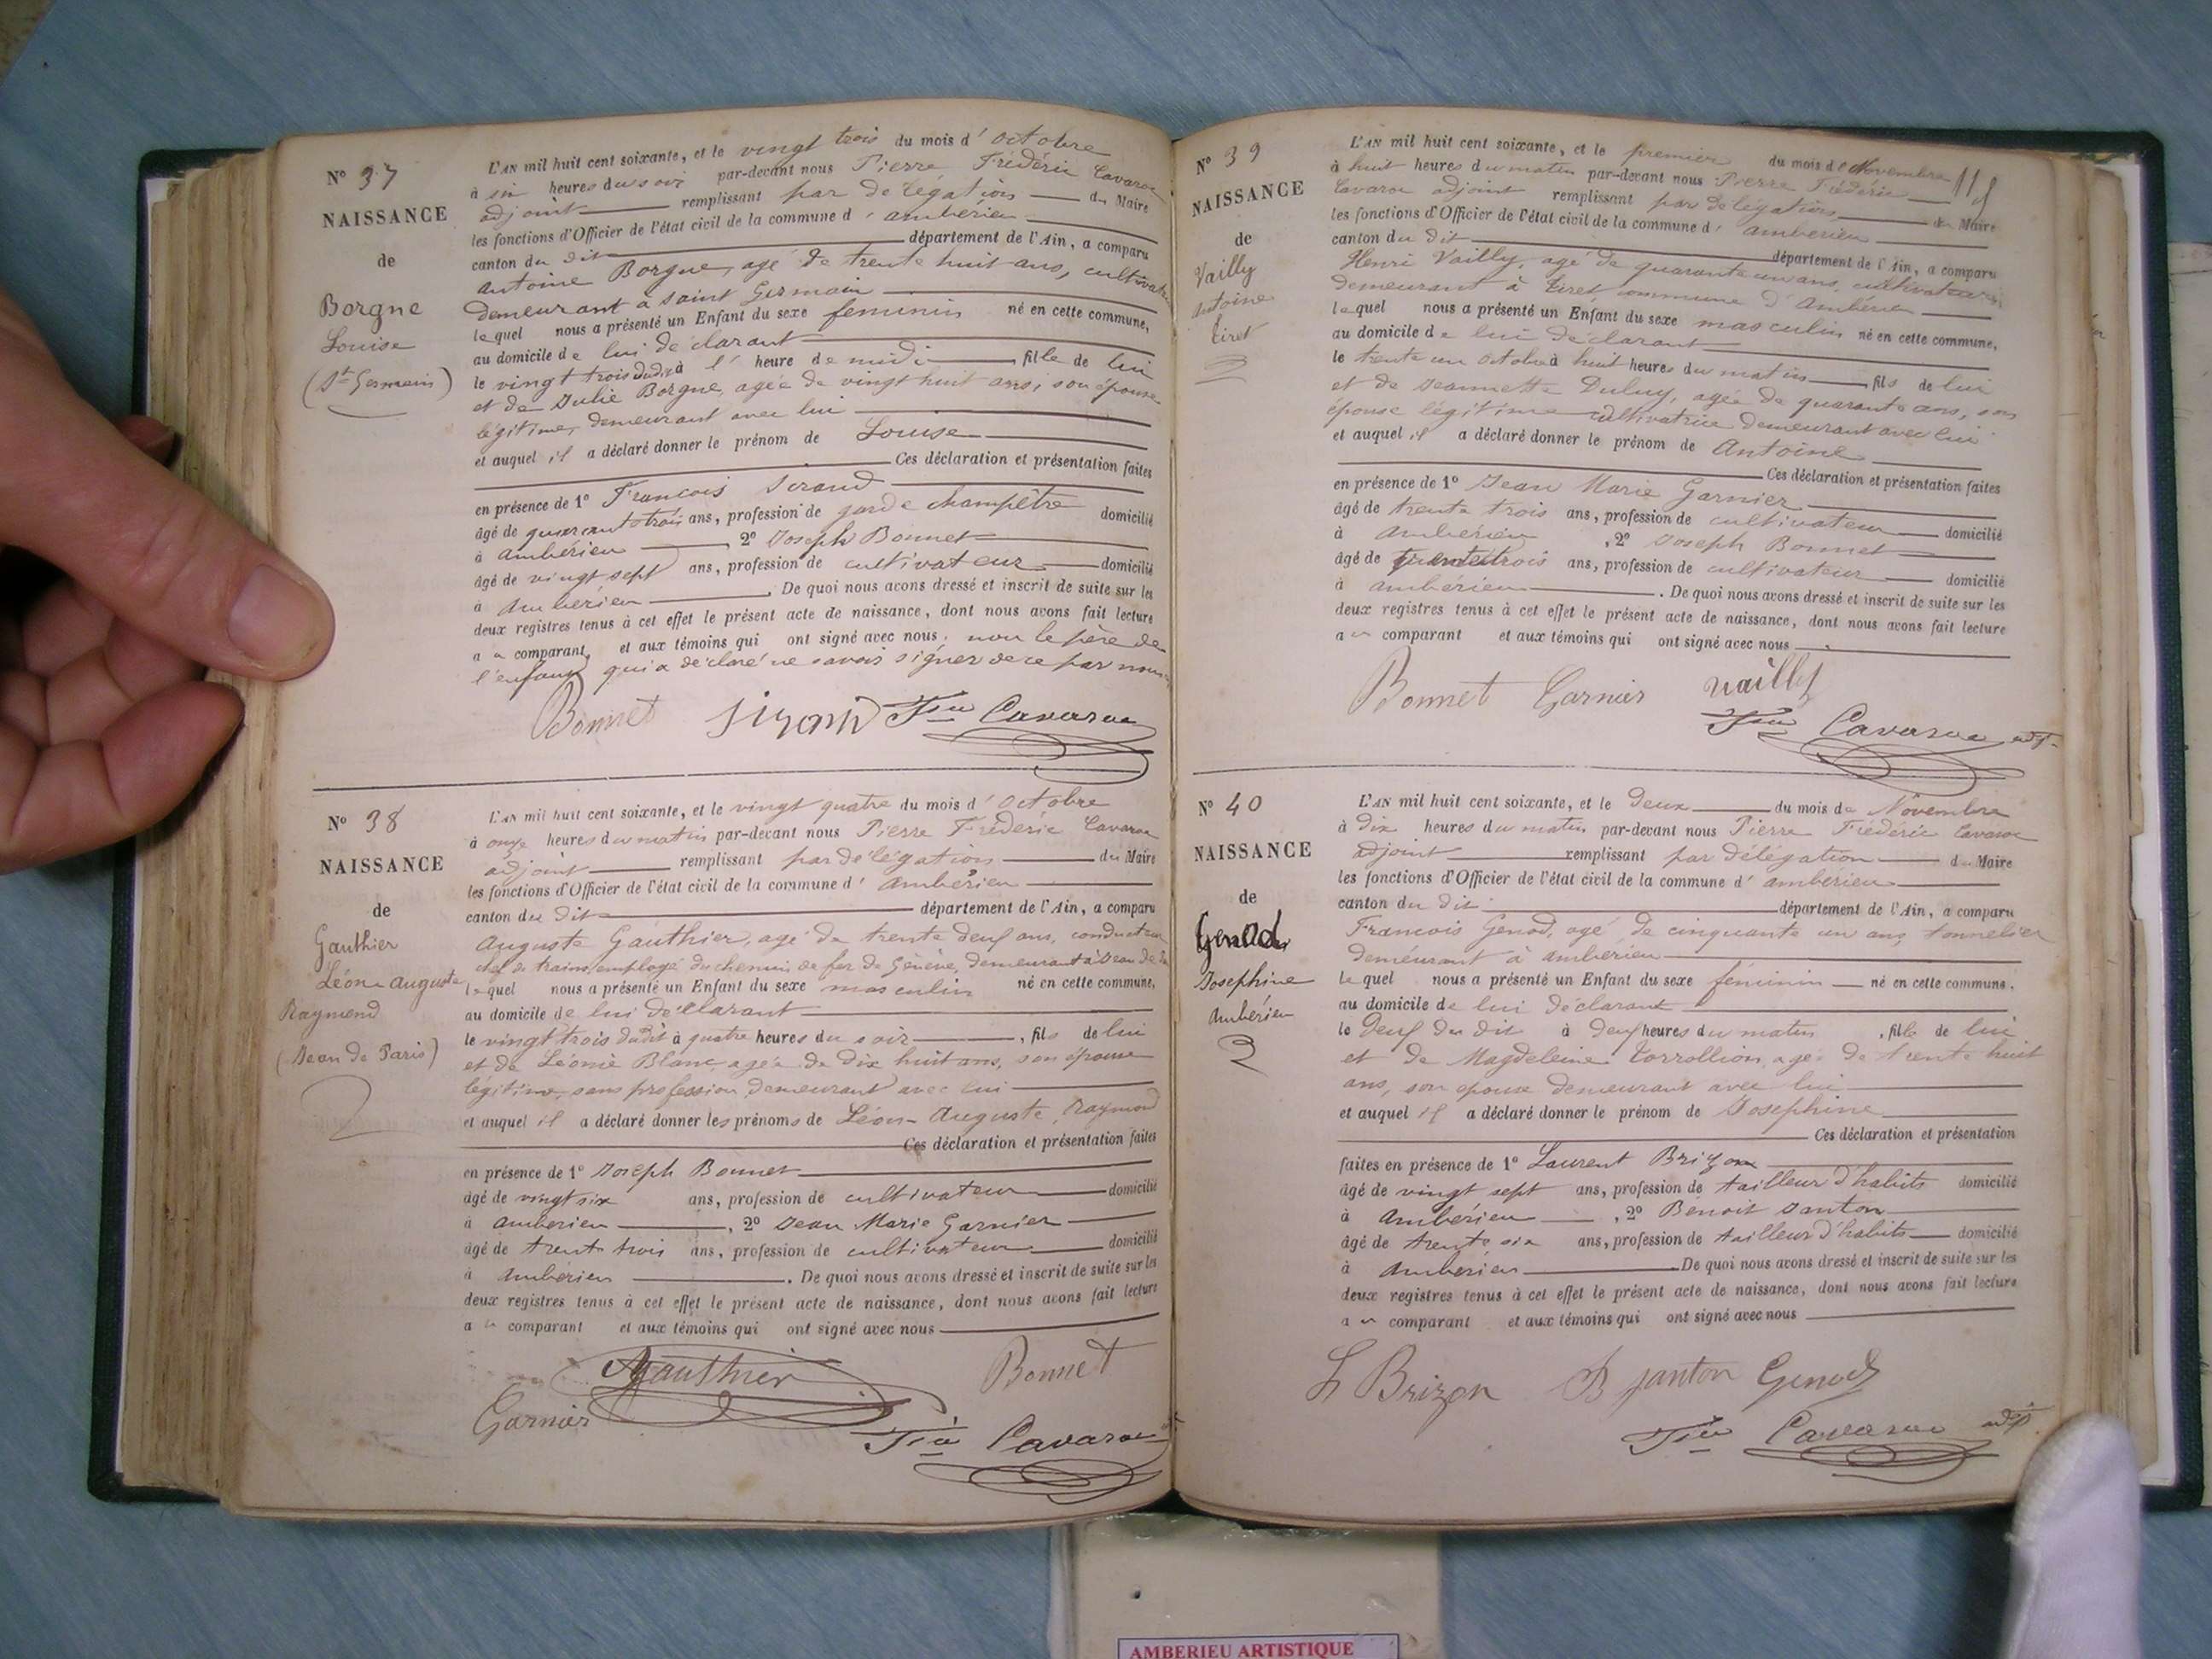 N° 37
NAISSANCE
de
Borgne
Louise
(St Germain)
L'AN mil huit cent soixante, et le vingt trois du mois d' octobre
à six heures du soir par-devant nous Pierre Frédéric Cavaroc
adjoint remplissant par délégation du Maire
les fonctions d'Officier de l'état civil de la commune d' ambérieu
canton du dit département de l'Ain, a comparu
antoine Borgne, agé de trente huit ans, cultivateur
demeurant à saint Germain
lequel nous a présenté un Enfant du sexe feminin né en cette commune,
au domicile de lui déclarant
le vingt trois dudit à l' heure de midi fille de lui
et de Julie Borgne, agée de vingt huit ans, son épouse
légitime, demeurant avec lui
et auquel il a déclaré donner le prénom de Louise
Ces déclaration et présentation faites
en présence de 1° François Sirand
âgé de quarante trois ans, profession de garde champêtre domicilié
à ambérieu , 2° Joseph Bonnet
âgé de vingt sept ans, profession de cultivateur domicilié
à ambérieu . De quoi nous avons dressé et inscrit de suite sur les
deux registres tenus à cet effet le présent acte de naissance, dont nous avons fait lecture
au comparant, et aux témoins qui ont signé avec nous, non le père de
l'enfant qui a déclaré ne savoir signer de ce par nous
Bonnet Sirand Fic Cavaroc
N° 38
NAISSANCE
de
Gauthier
Léon auguste
Raymond
(Jean de Paris)
L'AN mil huit cent soixante, et le vingt quatre du mois d' octobre
à onze heures du matin par-devant nous Pierre Frédéric Cavaroc
adjoint remplissant par délégation du Maire
les fonctions d'Officier de l'état civil de la commune d' ambérieu
canton du dit département de l'Ain, a comparu
auguste Gauthier, agé de trente deux ans, conducteur
chef de trains, employé du chemin de fer de Genève, demeurant à Jean de
lequel nous a présenté un Enfant du sexe masculin né en cette commune,
au domicile de lui déclarant
le vingt trois dudit à quatre heures du soir , fils de lui
et de Léonie Blanc, agée de dix huit ans, son épouse
légitime, sans profession, demeurant avec lui
et auquel il a déclaré donner les prénoms de Léon- Auguste, Raymond
Ces déclaration et présentation faites
en présence de 1° Joseph Bonnet
âgé de vingt six ans, profession de cultivateur domicilié
à ambérieu , 2° Jean Marie Garnier
âgé de trente trois ans, profession de cultivateur domicilié
à ambérieu . De quoi nous avons dressé et inscrit de suite sur les
deux registres tenus à cet effet le présent acte de naissance, dont nous avons fait lecture
au comparant et aux témoins qui ont signé avec nous
AGauthier Bonnet
Garnier
Fic Cavaroc
N° 39
NAISSANCE
de
Vailly
antoine
Tiret
L'AN mil huit cent soixante, et le premier du mois de Novembre
à huit heures du matin par-devant nous Pierre Frédéric
Cavaroc adjoint remplissant par délégation du Maire
les fonctions d'Officier de l'état civil de la commune d' ambérieu
canton du dit département de l'Ain, a comparu
Henri Vailly, agé de quarante un ans, cultivateur
demeurant à Tiret, commune d'Ambérieu
lequel nous a présenté un Enfant du sexe masculin né en cette commune,
au domicile de lui déclarant
le trente un octobre à huit heures du matin fils de lui
et de Jeannette Duluy, agée de quarante ans, son
épouse légitime cultivatrice demeurant avec lui
et auquel il a déclaré donner le prénom de Antoine
Ces déclaration et présentation faites
en présence de 1° Jean Marie Garnier
âgé de trente trois ans, profession de cultivateur domicilié
à ambérieu , 2° Joseph Bonnet
âgé de trente trois ans, profession de cultivateur domicilié
à ambérieu . De quoi nous avons dressé et inscrit de suite sur les
deux registres tenus à cet effet le présent acte de naissance, dont nous avons fait lecture
au comparant et aux témoins qui ont signé avec nous
Bonnet Garnier vailly
Fic Cavaroc adjt
N° 40
NAISSANCE
de
Genod
Josephine
Ambérieu
L'AN mil huit cent soixante, et le deux du mois de Novembre
à dix heures du matin par-devant nous Pierre Frédéric Cavaroc
adjoint remplissant par délégation du Maire
les fonctions d'Officier de l'état civil de la commune d' ambérieu
canton du dit département de l'Ain, a comparu
François Genod, agé de cinquante un ans, tonnelier
demeurant à ambérieu
lequel nous a présenté un Enfant du sexe féminin né en cette commune,
au domicile de lui déclarant
le deux du dit à deux heures du matin , fille de lui
et de Magdeleine Torrollion, agée de trente huit
ans, son epouse demeurant avec lui
et auquel il a déclaré donner le prénom de Josephine
Ces déclaration et présentation
faites en présence de 1° Laurent Brizon
âgé de vingt sept ans, profession de tailleur d'habits domicilié
à Ambérieu , 2° Benoit Janton
âgé de trente six ans, profession de tailleur d'habits domicilié
à Ambérieu De quoi nous avons dressé et inscrit de suite sur les
deux registres tenus à cet effet le présent acte de naissance, dont nous avons fait lecture
au comparant et aux témoins qui ont signé avec nous
L Brizon B janton Genod
Fic Cavaroc adjt
AMBERIEU ARTISTIQUE